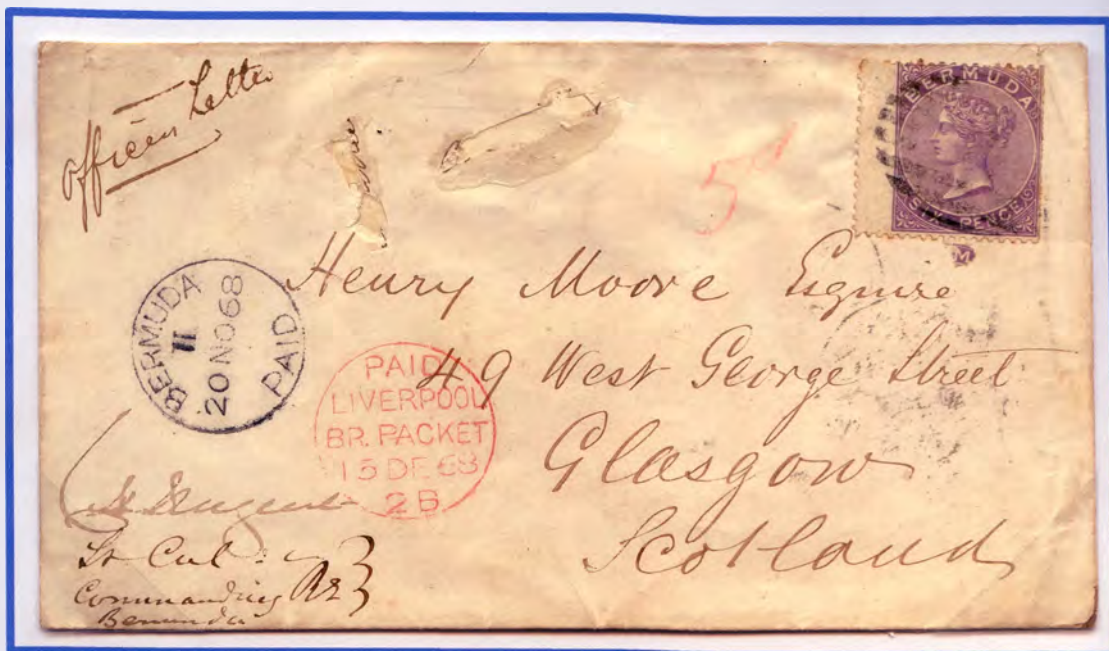 Officers Letter
BERMUDA
SIX PENCE
5d
Henry Moore Esquire
49 West George Street
Glasgow
Scotland
BERMUDA
II
20 NO 68
PAID
PAID
LIVERPOOL
BR. PACKET
15 DE 68
2B
Nugent
Lt Col:
Commanding RE
Bermuda
M